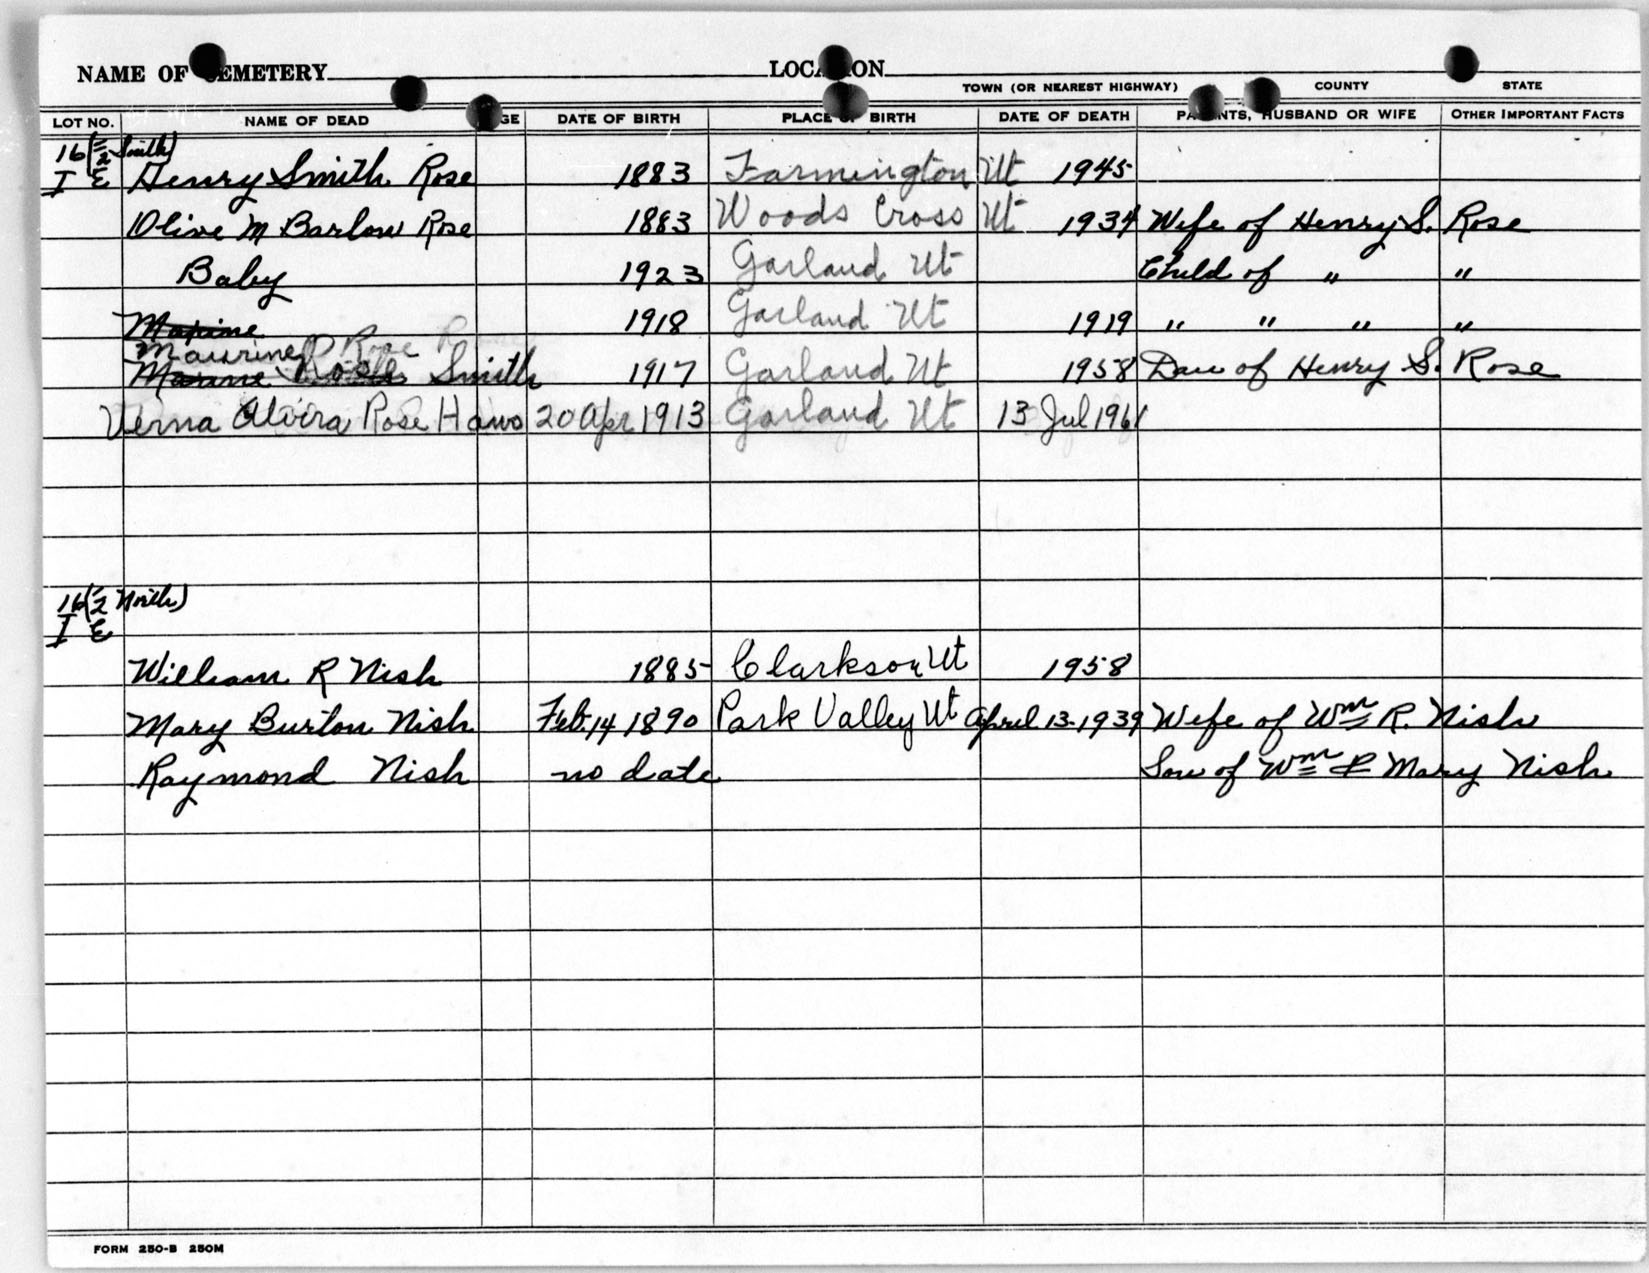 NAME OF CEMETERY LOCATION
TOWN (OR NEAREST HIGHWAY) COUNTY STATE
LOT NO. NAME OF DEAD AGE DATE OF BIRTH PLACE OF BIRTH DATE OF DEATH PARENTS, HUSBAND OR WIFE OTHER IMPORTANT FACTS
16 (1/2 South)
I E Henry Smith Rose 1883 Farmington Ut 1945
Olive M Barlow Rose 1883 Woods Cross Ut 1934 Wife of Henry S. Rose
Baby 1923 Garland Ut Child of " "
Maxine 1918 Garland Ut 1919 " " " "
Maurine Rose
Maxine Rose Smith 1917 Garland Ut 1958 Dau of Henry S. Rose
Verna Alvira Rose Haws 20 Apr 1913 Garland Ut 13 Jul 1961
16 (1/2 North)
I E
William R Nish 1885 Clarkson Ut 1958
Mary Burton Nish Feb. 14 1890 Park Valley Ut April 13-1939 Wife of Wm R. Nish
Raymond Nish no date Son of Wm & Mary Nish
FORM 250-B 250M